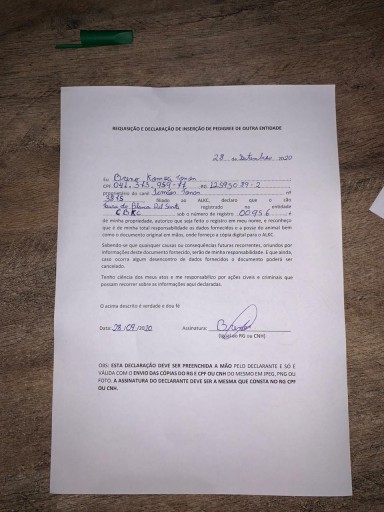 REQUISIÇÃO E DECLARAÇÃO DE INSERÇÃO DE PEDIGREE DE OUTRA ENTIDADE
28 de Setembro 2020
Eu Breno Ramos
CPF 041.373.959-77 RG 125950 89-2
proprietário do canil Ramos nº
3875 filiado ao ALKC, declaro que o cão
Blanca Del registrado na entidade
CBKC sob o número de registro 00956 é
de minha propriedade, autorizo que seja feito o registro em meu nome, e reconheço
que é de minha total responsabilidade os dados fornecidos e a posse do animal bem
como o documento original em mãos, onde forneço a cópia digital para o ALKC.
Sabendo-se que quaisquer causas ou consequências futuras recorrentes, oriundos por
informações deste documento fornecido, serão de minha responsabilidade. E que ainda,
caso ocorra algum desencontro de dados fornecidos o documento poderá ser
cancelado.
Tenho ciência dos meus atos e me responsabilizo por ações cíveis e criminais que
possam recorrer sobre as informações aqui declaradas.
O acima descrito é verdade e dou fé
Data: 28/09/2020 Assinatura:
(igual do RG ou CNH)
OBS: ESTA DECLARAÇÃO DEVE SER PREENCHIDA A MÃO PELO DECLARANTE E SÓ É
VÁLIDA COM O ENVIO DAS CÓPIAS DO RG E CPF OU CNH DO MESMO EM JPEG, PNG OU
FOTO. A ASSINATURA DO DECLARANTE DEVE SER A MESMA QUE CONSTA NO RG CPF
OU CNH.